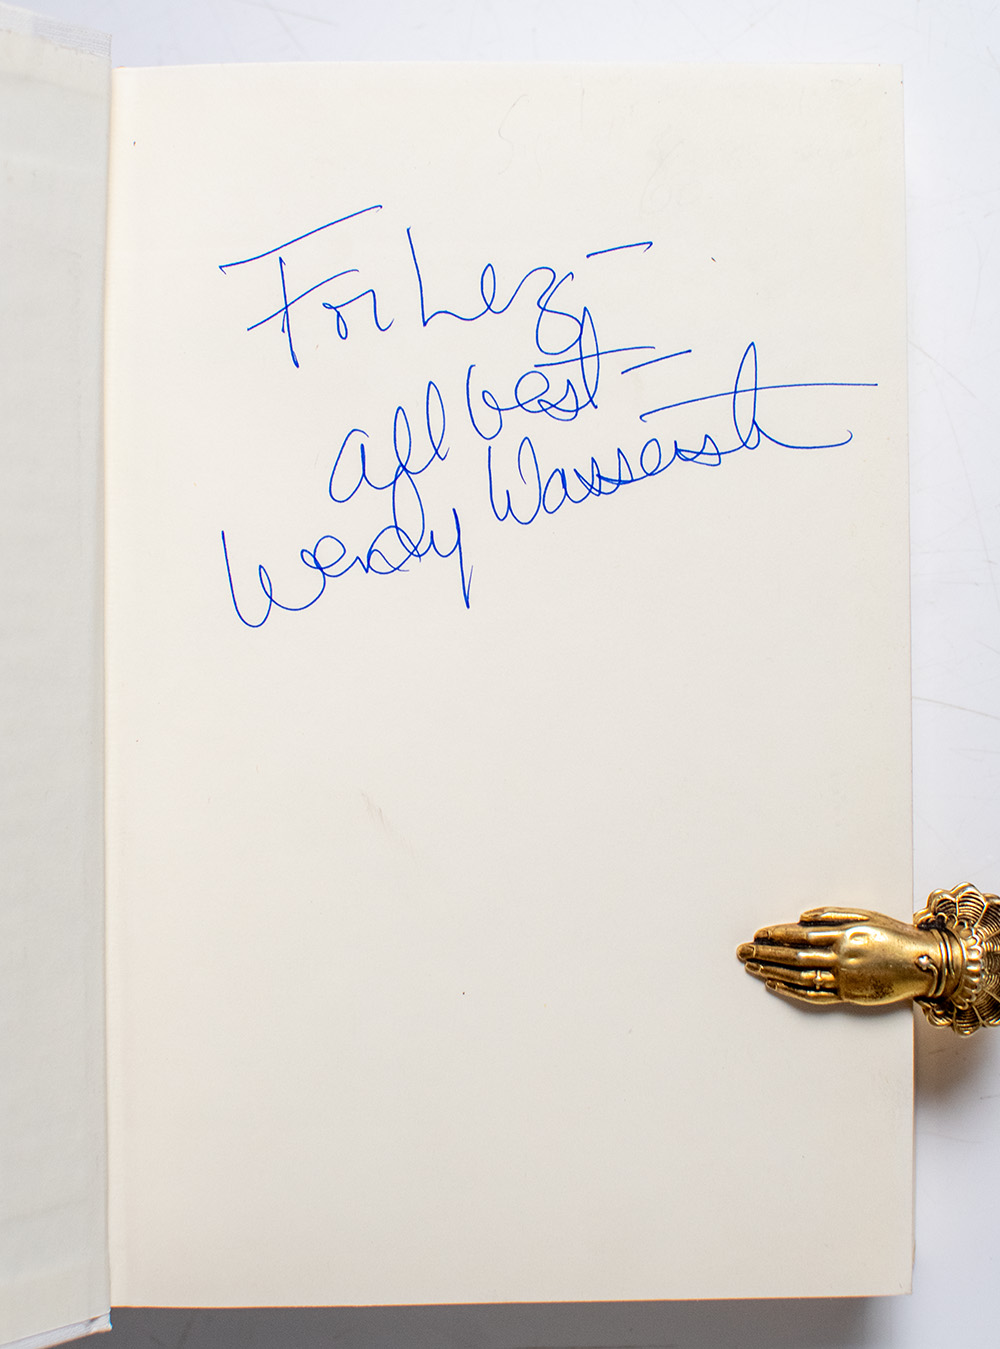 For Lezs –
all best –
Wendy Wasserstein